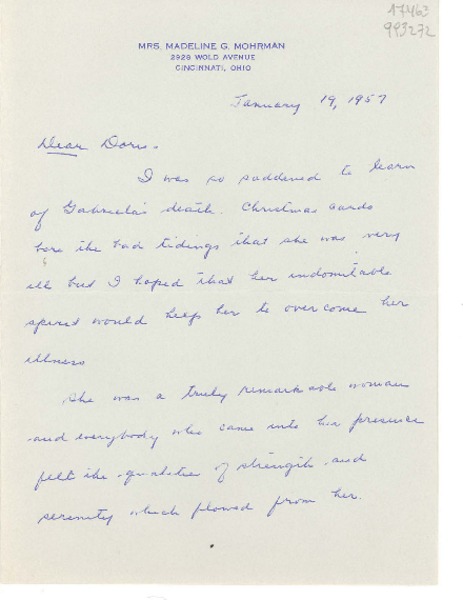 17463
993272
MRS. MADELINE G. MOHRMAN
2928 WOLD AVENUE
CINCINNATI, OHIO
January 19, 1957
Dear Doris.
I was so saddened to learn
of Gabriela's death. Christmas cards
bore the bad tidings that she was very
ill but I hoped that her indomitable
spirit would help her to overcome her
illness
She was a truly remarkable woman
and everybody who came into her presence
felt the qualities of strength and
serenity which flowed from her.